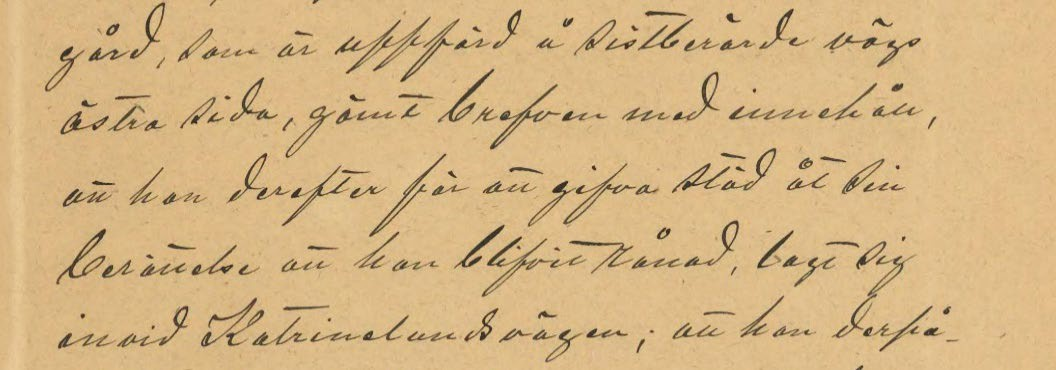 gård, som är uppförd å sistberörde vägs
östra sida, gömt brefven med innehåll,
att han derefter för att gifva stöd åt sin
berättelse att han blifvit rånad, lagt sig
invid Katrinelundsvägen; att han derpå-